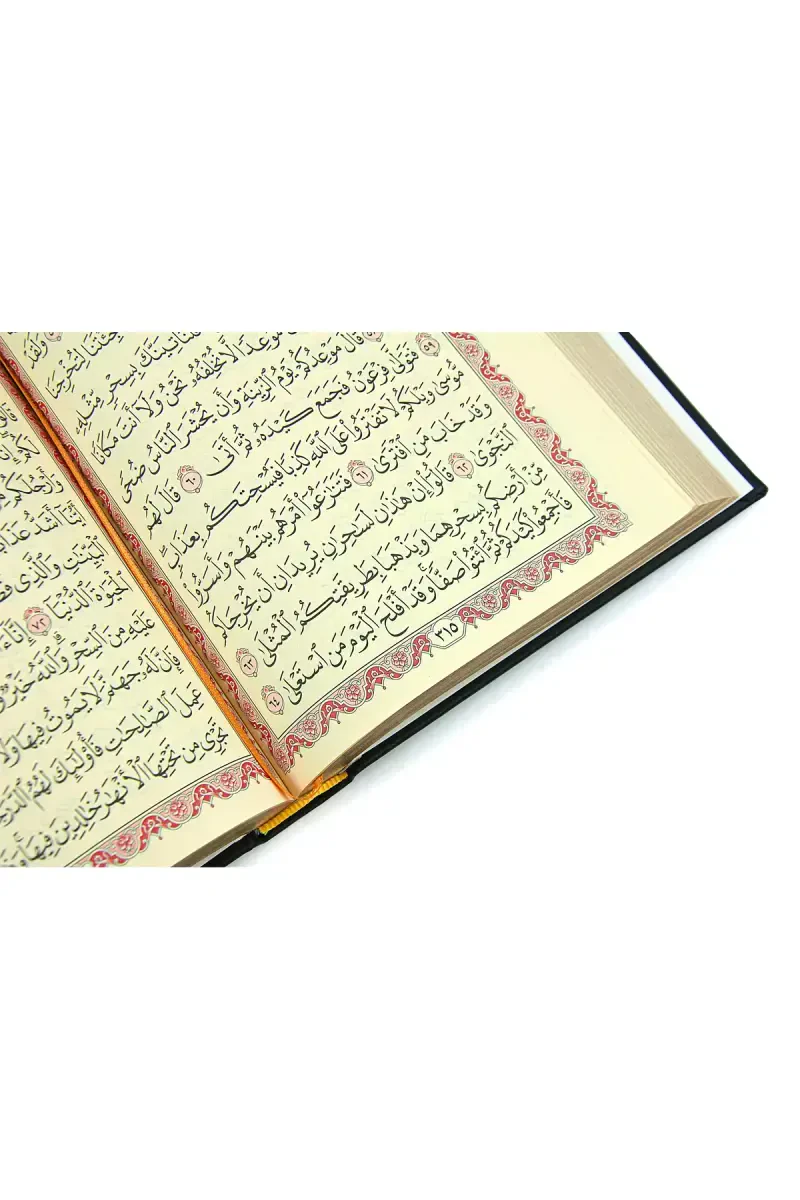 وَلَقَدْ
جِئْتَنَا لِتُخْرِجَنَا
بِسِحْرٍ مِّثْلِهِۦ
مَوْعِدًا لَّا نُخْلِفُهُۥ نَحْنُ وَلَآ أَنتَ مَكَانًا
قَالَ مَوْعِدُكُمْ يَوْمُ ٱلزِّينَةِ وَأَن يُحْشَرَ ٱلنَّاسُ ضُحًى
٥٩ فَتَوَلَّىٰ فِرْعَوْنُ فَجَمَعَ كَيْدَهُۥ ثُمَّ أَتَىٰ ٦٠ قَالَ لَهُم
مُّوسَىٰ وَيْلَكُمْ لَا تَفْتَرُوا۟ عَلَى ٱللَّهِ كَذِبًا فَيُسْحِتَكُم بِعَذَابٍ
وَقَدْ خَابَ مَنِ ٱفْتَرَىٰ ٦١ فَتَنَٰزَعُوٓا۟ أَمْرَهُم بَيْنَهُمْ وَأَسَرُّوا۟
ٱلنَّجْوَىٰ ٦٢ قَالُوٓا۟ إِنْ هَٰذَٰنِ لَسَٰحِرَٰنِ يُرِيدَانِ أَن يُخْرِجَاكُم
مِّنْ أَرْضِكُم بِسِحْرِهِمَا وَيَذْهَبَا بِطَرِيقَتِكُمُ ٱلْمُثْلَىٰ ٦٣
فَأَجْمِعُوا۟ كَيْدَكُمْ ثُمَّ ٱئْتُوا۟ صَفًّا وَقَدْ أَفْلَحَ ٱلْيَوْمَ مَنِ ٱسْتَعْلَىٰ ٦٤
٣١٥
وَأَرْجُلَكُم
أَيُّنَآ أَشَدُّ عَذَابًا
ٱلْبَيِّنَٰتِ وَٱلَّذِى
ٱلْحَيَوٰةَ ٱلدُّنْيَآ ٧٢ إِنَّآ
عَلَيْهِ مِنَ ٱلسِّحْرِ وَٱللَّهُ خَيْرٌ
فَإِنَّ لَهُۥ جَهَنَّمَ لَا يَمُوتُ فِيهَا وَلَا
عَمِلَ ٱلصَّٰلِحَٰتِ فَأُو۟لَٰٓئِكَ لَهُمُ
تَجْرِى مِن تَحْتِهَا ٱلْأَنْهَٰرُ خَٰلِدِينَ فِيهَا